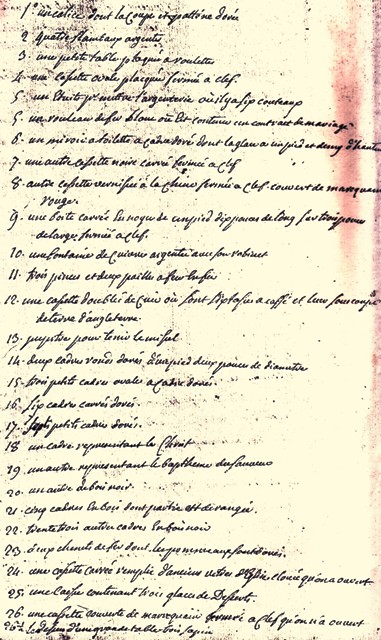 1° un calice dont la Coupe et pattene dorée
2 quatre flambaux argentés
3 une petite table plaqué a roulettes
4 une Casette ovale plaqueé fermée a clef
5 un Etuit pr mettre l'argenterie ou il y a six couteaux
5 un rouleau de fer blanc ou Est contenu un contrat de mariage
6. un miroir a toilette a cadre doré dont la glace a un pied et demy d'hauteur
7. une autre Casette noire carré fermée a clef
8. autre casette vernissée a la Chine fermée a Clef. couvert de maroquain
rouge.
9. une boite carrée En noyer de un pied dix pouces de long sur trois pouces
de large, fermée a Clef.
10. une fontaine de Cuivre argentée avec son robinet
11. trois pinces et deux pailles a feu En fer
12. une casette doublée de Cuir ou sont six tasses a caffé et leur soucoupes
de terre d'angleterre
13. pupitre pour tenir le missel
14. deux cadres ronds dorés d'un pied deux pouces de diametre
15. trois petits cadres ovale a cadre dorés.
16. six cadres carrés dorés.
17. Sept petits cadres dorés.
18 un cadre representant le Christ
19 un autre representant le baptheme du sauveur
20. un autre de bois noir
21. cinq cadres En bois dont partie est derangée.
22. trente trois autres cadres En bois noir
23. deux chenets de fer dont les pommeaux sont dorés.
24. une casette carrée remplie d'anciens vetres d'Eglise Clouée qu'on a ouvert
25. une Caisse contenant trois glaces de
26. une casette couverte de maroquain fermée a Clef qu'on n'a ouvert
26 2° le dessus d'une grande table bois sapin